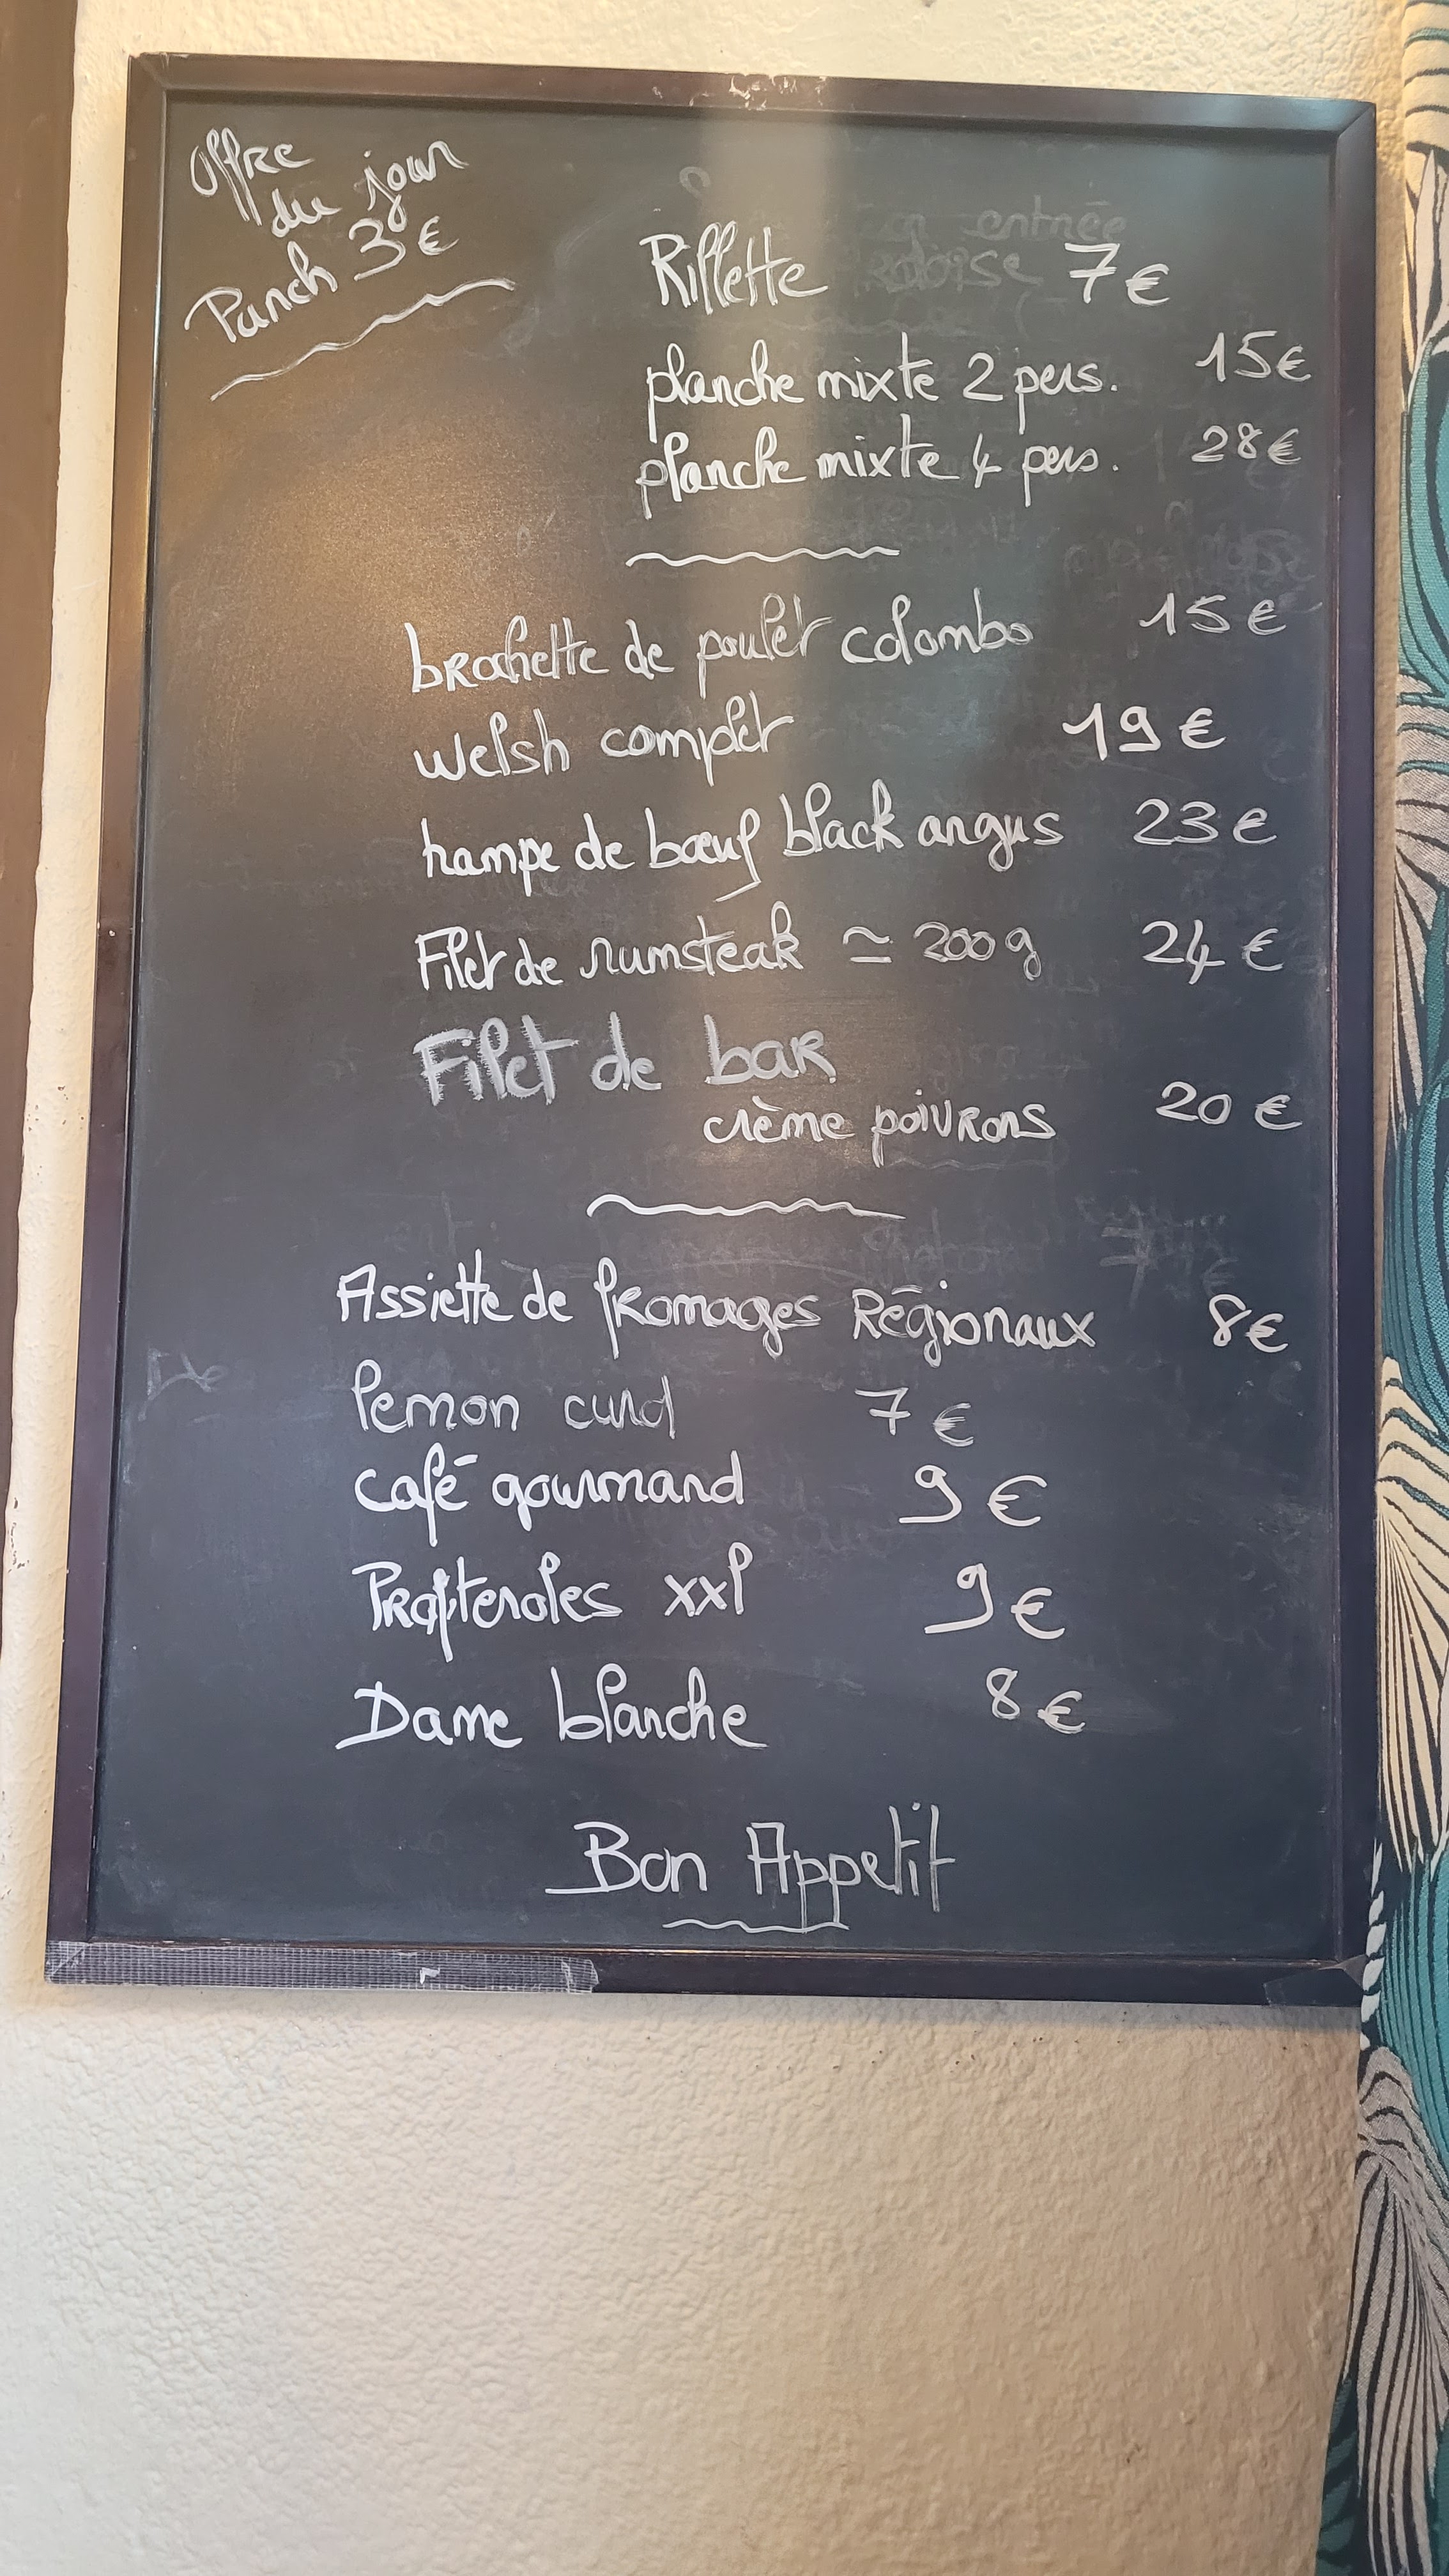 Offre
du jour
Punch 3€
Rillette 7€
planche mixte 2 pers. 15€
planche mixte 4 pers. 28€
brochette de poulet colombo 15€
welsh complet 19€
hampe de bœuf black angus 23€
Filet de rumsteak ≃ 200g 24€
Filet de bar
crème poivrons 20€
Assiette de fromages Régionaux 8€
lemon curd 7€
café gourmand 9€
Profiteroles xxl 9€
Dame blanche 8€
Bon Appetit